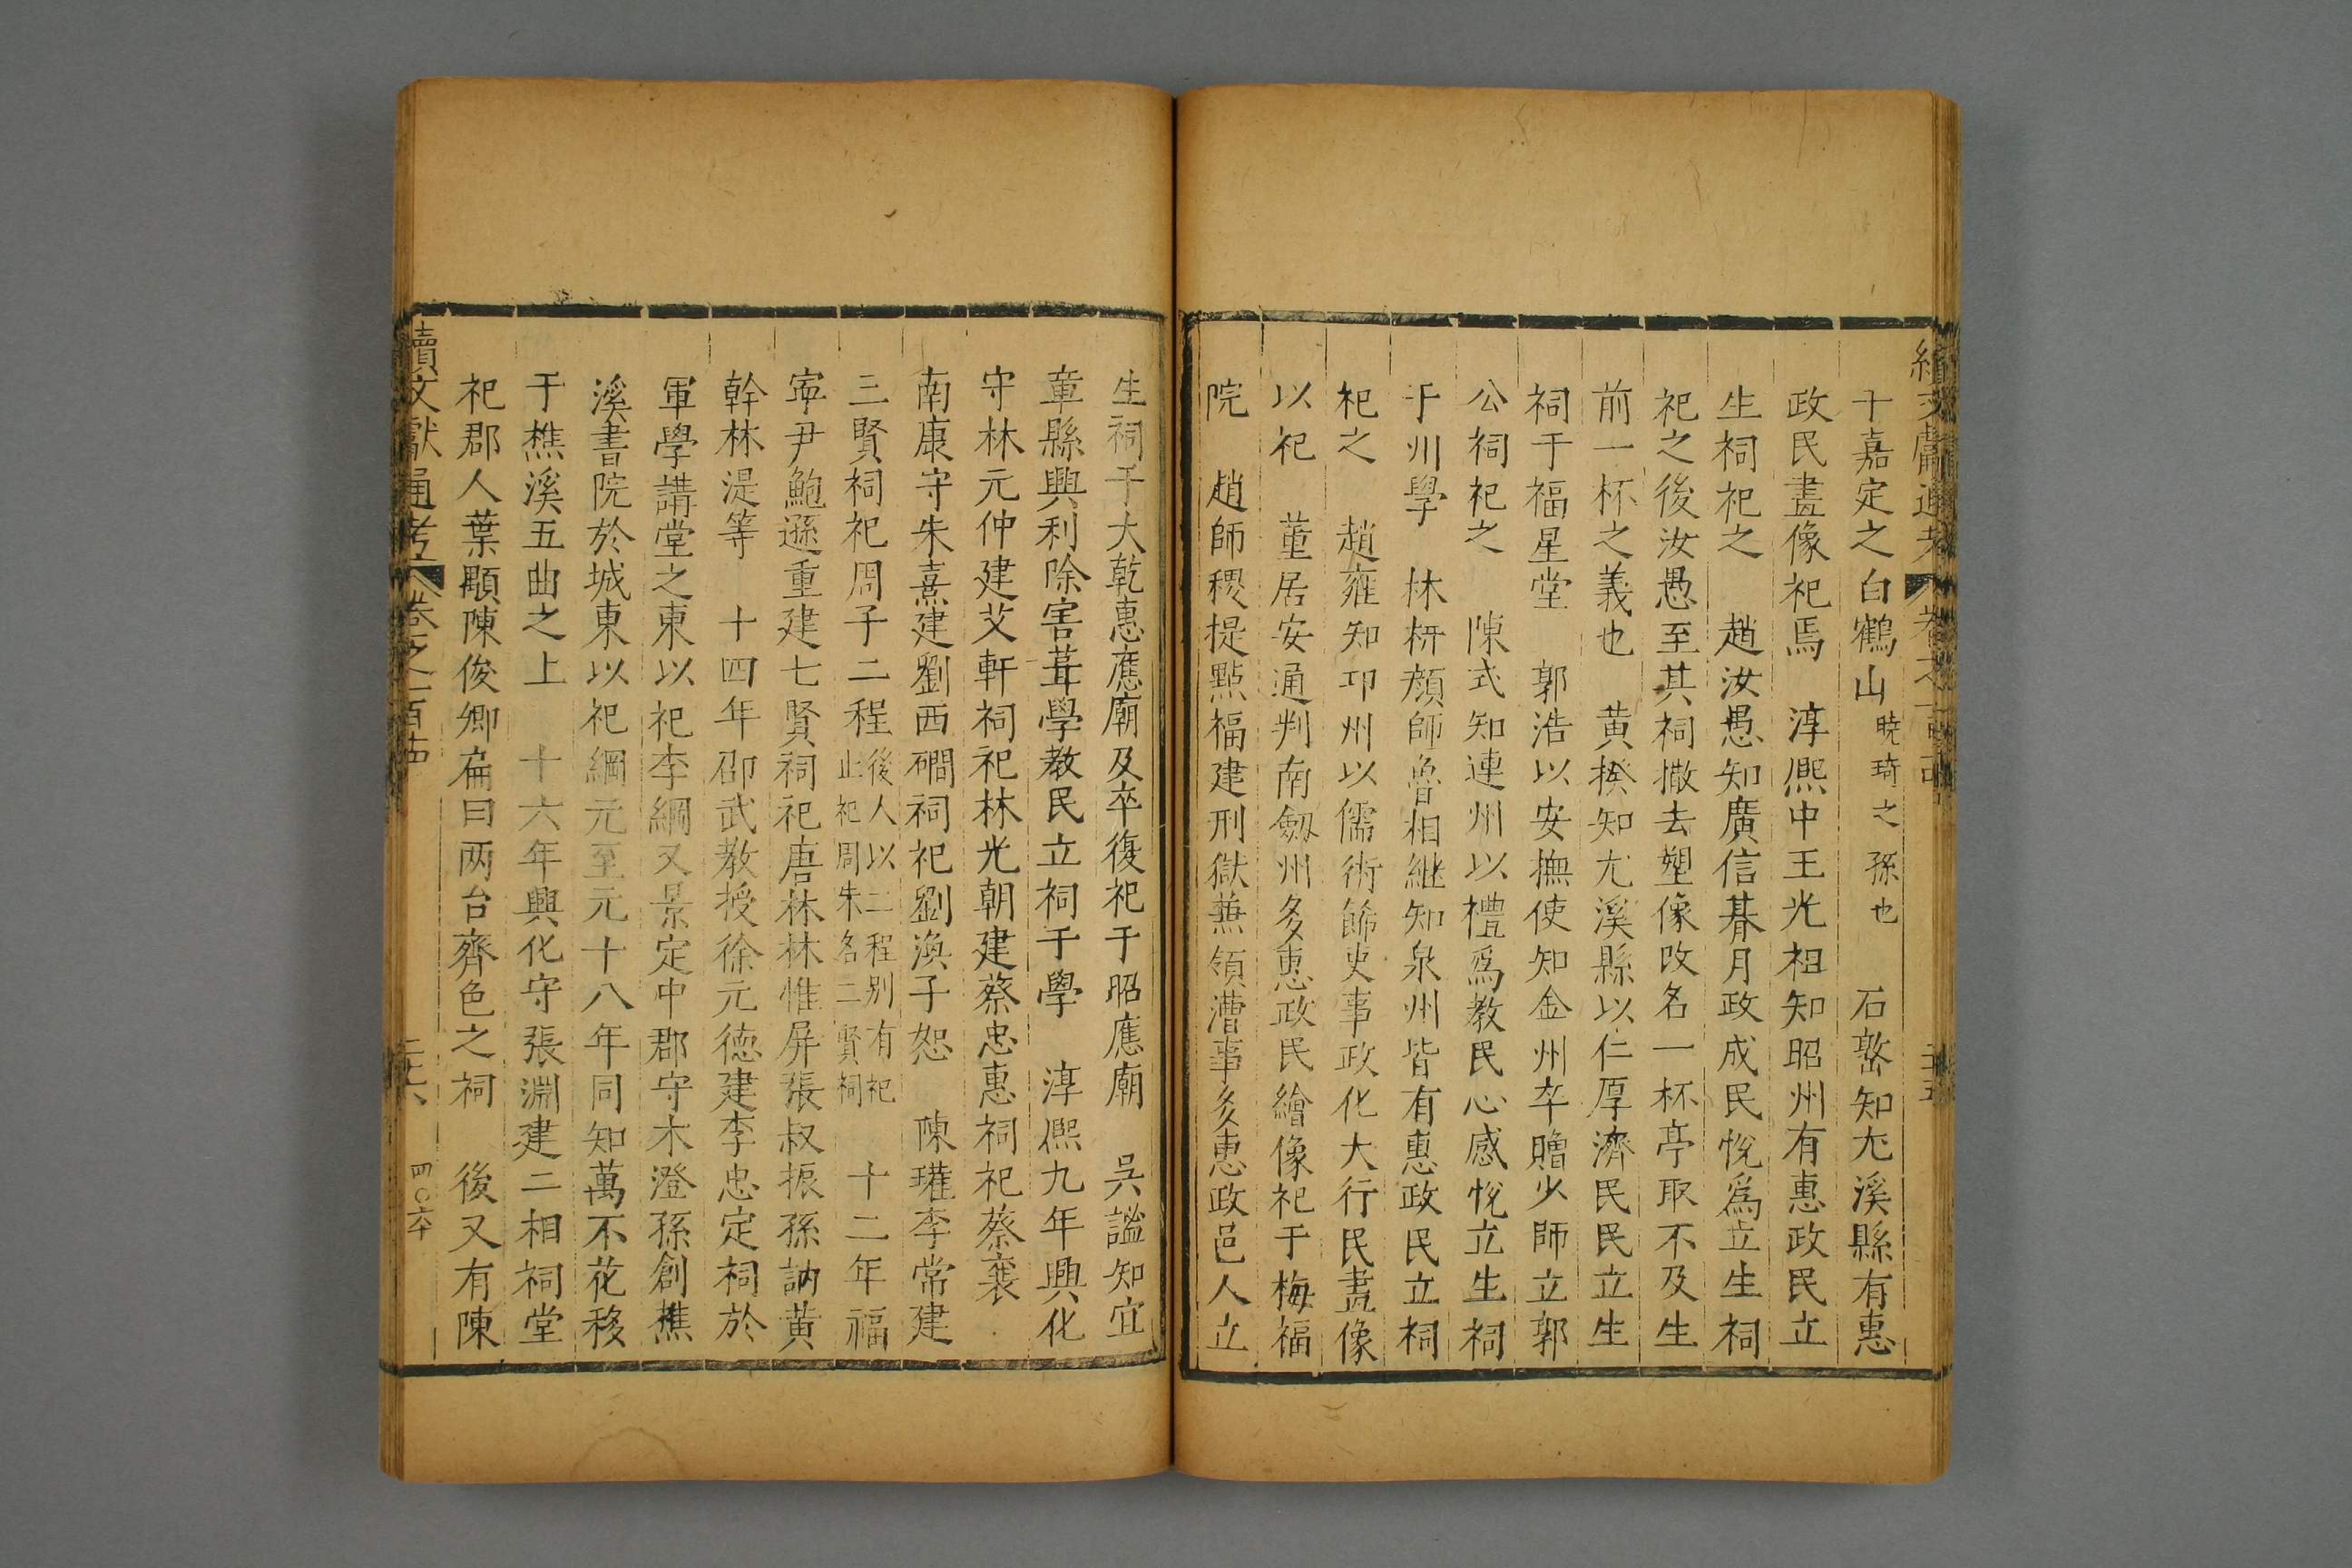 續文獻通考 卷之一百十五
于嘉定之白鶴山 曉琦之孫也 石𡼖知尤溪縣有惠
政民畫像祀焉 淳熈中王光祖知昭州有惠政民立
生祠祀之 趙汝愚知廣信朞月政成民悅爲立生祠
祀之後汝愚至其祠撒去塑像改名一杯亭取不及生
前一杯之義也 黃揆知尤溪縣以仁厚濟民民立生
祠于福星堂 郭浩以安撫使知金州卒贈少師立郭
公祠祀之 陳式知連州以禮爲教民心感悅立生祠
于州學 林枅顔師魯相継知泉州皆有惠政民立祠
祀之 趙雍知邛州以儒術餙吏事政化大行民畫像
以祀 董居安通判南劒州多惠政民繪像祀于梅福
院 趙師稷提點福建刑獄兼領漕事多惠政邑人立
生祠于大乾惠應廟及卒復祀于昭應廟 吳謐知宜
章縣興利除害葺學教民立祠于學 淳熈九年興化
守林元仲建艾軒祠祀林光朝建蔡忠惠祠祀蔡襄
南康守朱熹建劉西磵祠祀劉渙子恕 陳瓘李常建
三賢祠祀周子二程 後人以二程别有祀止祀周朱名二賢祠 十二年福
寜尹鮑遜重建七賢祠祀唐林林惟屏張叔振孫訥黃
幹林湜等 十四年邵武教授徐元德建李忠定祠於
軍學講堂之東以祀李綱又景定中郡守木澄孫創樵
溪書院於城東以祀綱元至元十八年同知萬不花移
于樵溪五曲之上 十六年興化守張淵建二相祠堂
祀郡人葉顒陳俊卿扁曰两台齊色之祠 後又有陳
續文獻通考 卷之一百十五 二十六 四〇六